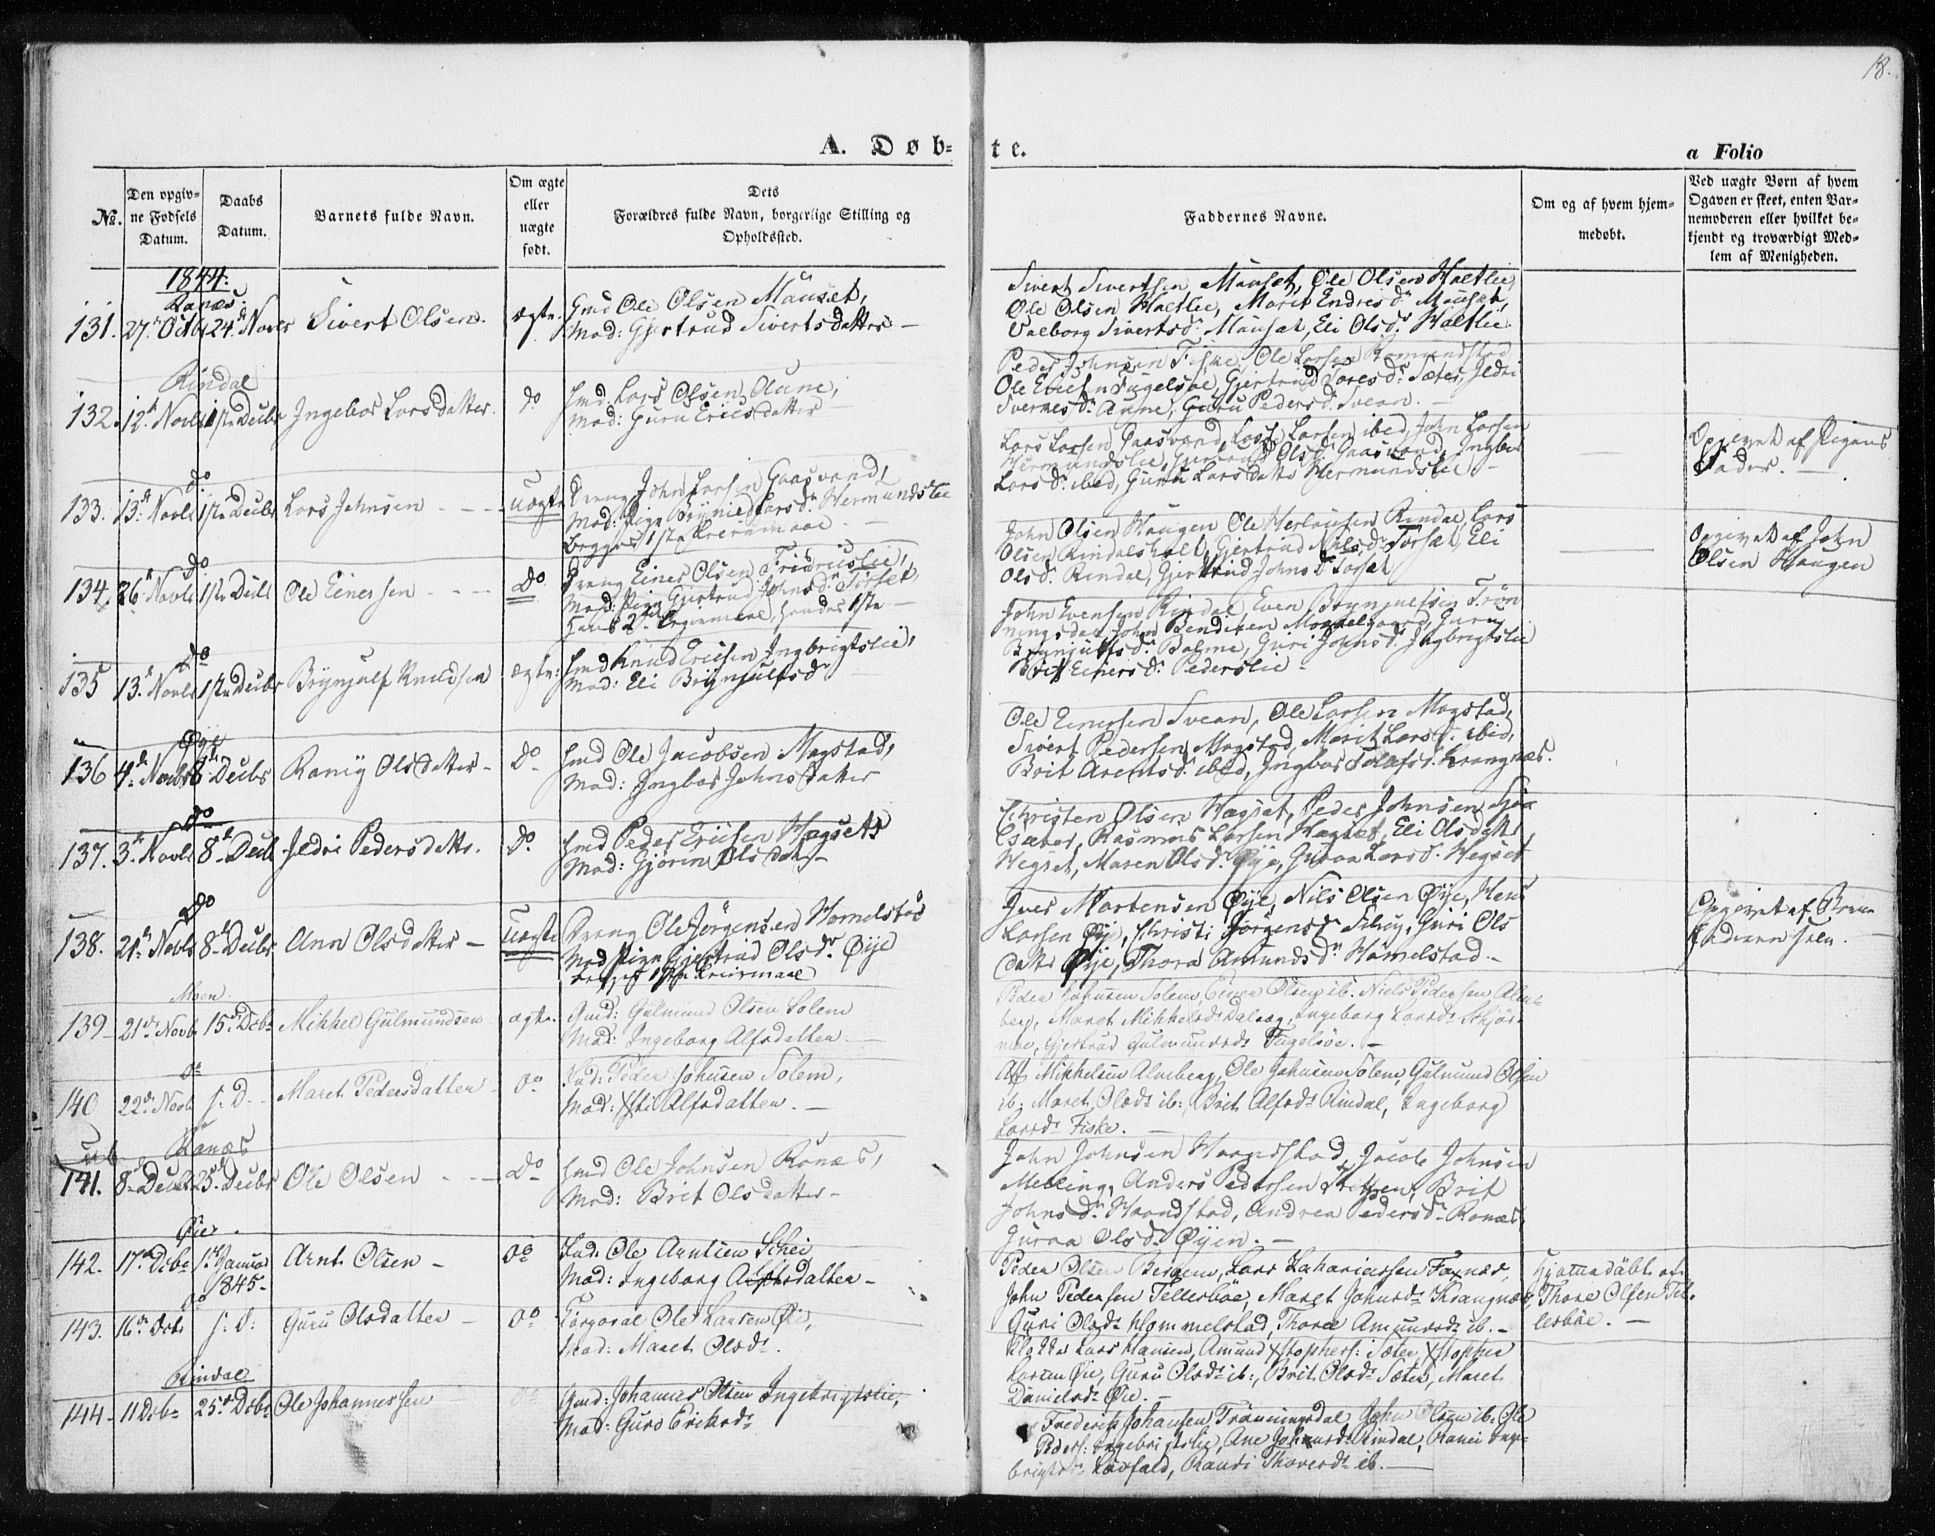 18.
A. Døb-
te.
a Folio
No.
Den opgiv-
ne Fødsels
Datum.
Daabs
Datum.
Barnets fulde Navn.
Om ægte
eller
uægte
født.
Dets
Forældres fulde Navn, borgerlige Stilling og
Opholdssted.
Faddernes Navne.
Om og af hvem hjem-
medøbt.
Ved uægte Børn af hvem
Opgaven er skeet, enten Bar-
nemoderen eller hvilket be-
kjendt og troværdigt Med-
lem af Menigheden.
1844.
Ranæs
131. 27. Octb 24. Novbr Sivert Olsen. ægte. Gmd Ole Olsen Mauset,
Mod: Gjertrud Sivertsdatter —
Sivert Sivertsen Mauset, Ole Olsen Haltlie
Ole Olsen Haltlie, Marit Endresdr Mauset,
Valborg Sivertsdr Mauset, Eli Olsdr Haltlie
Rindal
132. 12. Novbr 1ste Decbr Ingebor Larsdatter. do Gmd. Lars Olsen Aune,
Mod: Guru Ericsdatter —
Peder Johnsen Fiske, Ole Larsen Romundstad
Ole Fugelsøe, Gjertrud Toresdr Sæter, Jldri
Sverresdr Aune, Guru Pedersdr Svean. —
do
133. 13. Novbr 1ste Decbr Lars Johnsen - - - uægte Dreng John Larsen Gaasvand,
Mod: Pige Larsdr Hermundslie
Begges 1ste Leiermaal. —
Lars Larsen Gaasvand, Larsen ibed, John Larsen
Hermundslie, Olsdr Gaasvand, Ingebor
Larsdr ibed, Guru Larsdatter Hermundslie —
Opgivet af Pigens
Fader. —
do
134. 26. Novbr 1ste Decbr Ole Einersen - - - do Dreng Einer Olsen
Mod: Pige Gjertrud Johnsdr Torset,
Hans 2det Leiermaal, hendes 1ste —
John Olsen Haugen Ole Rindal, Lars
Olsen Rindalsholt, Gjertrud Nilsdr Torset, Eli
Olsdr Rindal, Gjertrud Johnsdr Torset
Opgivet af John
Olsen Haugen
do
135 13. Novbr 1ste Decbr Brynjulf Knudsen ægte: Gmd Knud Ericsen Ingbrigtslie,
Mod: Eli Brynjulfsdr —
John Evensen Rindal, Even Brynjulfsen Trøn-
ningsdal, John Bendixen Gury
Brynjulfsdr Bolme, Guri Johnsdr Ingbrigtslie
Brit Einersdr Pederslie
Øye
136 4. Novbr 8. Decbr Ranig Olsdatter — do Gmd Ole Jacobsen Magstad,
Mod: Ingbor Johnsdatter
Ole Einersen Svean, Ole Larsen Magstad,
Sivert Pedersen Magstad, Marit Larsdr ibid,
Brit Arentsdr ibed, Ingbor Krangnæs.
do
137. 3. Novbr 8. Decb Jldri Pedersdatter. do Gmd Peder Ericsen Hægset
Mod: Gjørin Olsdatter
Christen Olsen Hægset, Peder Johnsen
Rasmus Larsen Hægset, Eli Olsdatter
Hegset, Maren Olsdr Øye, Guroa Larsdr Hegset
do
138. 21. Novbr 8. Decbr Ann Olsdatter — Uægte Dreng Ole Jørgensen Homelstad
Mod Pige Gjertrud Olsdr Øye
Begges 1ste Leiermaal
Iver Mortensen Øye, Nils Olsen Øye,
Larsen Øye, Christi Jørgensdr Guri Ols
datter Øye, Thora Amundsdr Homelstad. —
Opgivet af
Faderen selv.
Moen.
139 — 21. Novb 15. Decbr Mikkel Gulmundsen ægte. Gmd: Gulmund Olsen Solem
Mod: Ingeborg Alfsdatter. —
Peder Johnsen Solem, Einer Olsen ib. Niels Pedersen Alm-
berg, Maret Mikkelsdr Ingeborg Larsdr Skjer-
moe, Gjertrud Gulmundsdr Fugelsøe. —
do
140 22. Novb s. D. Maret Pedersdatter — do Gmd: Peder Johnsen Solem,
Mod: Xsti Alfsdatter. —
Alf Mikkelsen Almberg, Ole Johnsen Solem, Gulmund Olsen
ib. Maret Olsdr ib:, Brit Alfsdr Rindal, Ingeborg
Larsdr Fiske. —
Ranæs
141. 8. Decb 25. Decbr Ole Olsen - - - do Gmd Ole Johnsen Ranæs,
Mod: Brit Olsdatter —
John Johnsen Haandstad, Jacob Johnsen
Melling, Anders Pedersen Brit
Johnsdr Haandstad, Andrea Pedersdr Ranæs,
Guroa Olsdr Øyen. —
Øie.
142. 17. Decbr 1. Januar
1845. Arnt Olsen — do Gmd. Ole Arntsen Schei
Mod: Ingeborg Alfsdatter —
Peder Olsen Bergem, Lars Zakariassen Foxnæs,
John Pedersen Tellesbøe, Maret Johnsdr Krangnæs
Guri Olsdr Hommelstad, Thore Amundsdr ib. —
Hjemmedøbt af
Thore Olsen Tel-
lesbøe. —
do
143. 16. Decbr s: D: Guru Olsdatter — do Ole Larsen Øie,
Mod: Maret Olsdr.
Lars Hansen, Amund Xstophers: Sæter, Xstopher
Larsen Øie, Guru Olsdr ib:, Brit Olsdr Sæter, Maret
Danielsdr Øie. —
Rindal
144 — 11 Decbr 25. Decbr Ole Johannessen Gmd: Johannes Olsen Ingebrigtslie,
Mod: Guro Eriksdr
Frederik Johansen, Trønningsdal, John Olsen ib. Ole
Peders: Ingebrigtslie, Ane Johansdr Rindal, Ranei Inge-
brigtsdr Løvfald, Randi Thoresdr ib. —